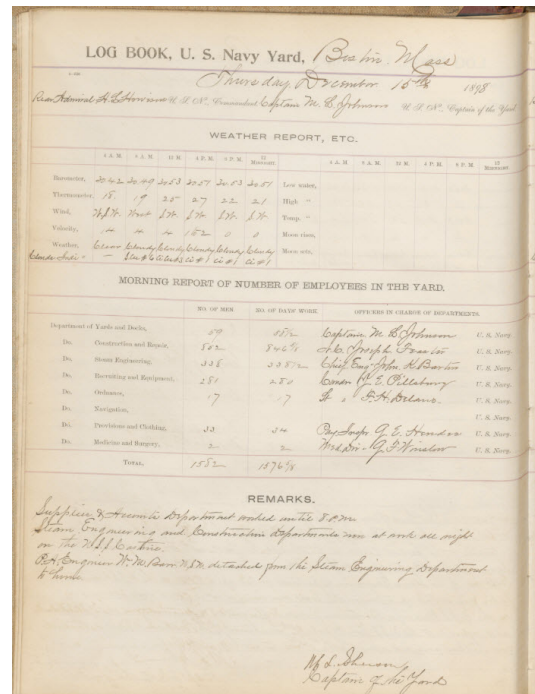 LOG BOOK, U. S. Navy Yard, Boston, Mass
Thursday, December 15th 1898
Rear Admiral H. L. Howison U. S. N., Commandant Captain M. L. Johnson U. S. N., Captain of the Yard
WEATHER REPORT, ETC.
4 A. M. 8 A. M. 12 M. 4 P. M. 8 P. M. 12 MIDNIGHT. 4 A. M. 8 A. M. 12 M. 4 P. M. 8 P. M. 12 MIDNIGHT.
Barometer, 30.42 30.49 30.53 30.57 30.53 30.51 Low water,
Thermometer, 18 19 25 27 22 21 High "
Wind, West S.W. S.W. S.W. S.W. Temp. "
Velocity, 4 4 4 0 0 Moon rises,
Weather, Clear Cloudy Cloudy Cloudy Cloudy Cloudy Moon sets,
MORNING REPORT OF NUMBER OF EMPLOYEES IN THE YARD.
NO. OF MEN. NO. OF DAYS' WORK. OFFICERS IN CHARGE OF DEPARTMENTS.
Department of Yards and Docks, 59 Captain M. L. Johnson U. S. Navy.
Do. Construction and Repair, 862 Joseph U. S. Navy.
Do. Steam Engineering, Chief Eng. John K. Barton U. S. Navy.
Do. Recruiting and Equipment, 281 280 J. E. Pillsbury U. S. Navy.
Do. Ordnance, 17 17 F. H. Delano U. S. Navy.
Do. Navigation, U. S. Navy.
Do. Provisions and Clothing, 33 34 G. E. U. S. Navy.
Do. Medicine and Surgery, 2 2 Med. Dir. G. F. Winslow U. S. Navy.
TOTAL, 1582
REMARKS.
Supplies & Accounts Department worked until 8 P.M.
Steam Engineering and Construction Departments were at work all night
on the U.S.S.
P.A. Engineer W. M. U.S.N. detached from the Steam Engineering Department
to home.
M. L. Johnson
Captain of the Yard